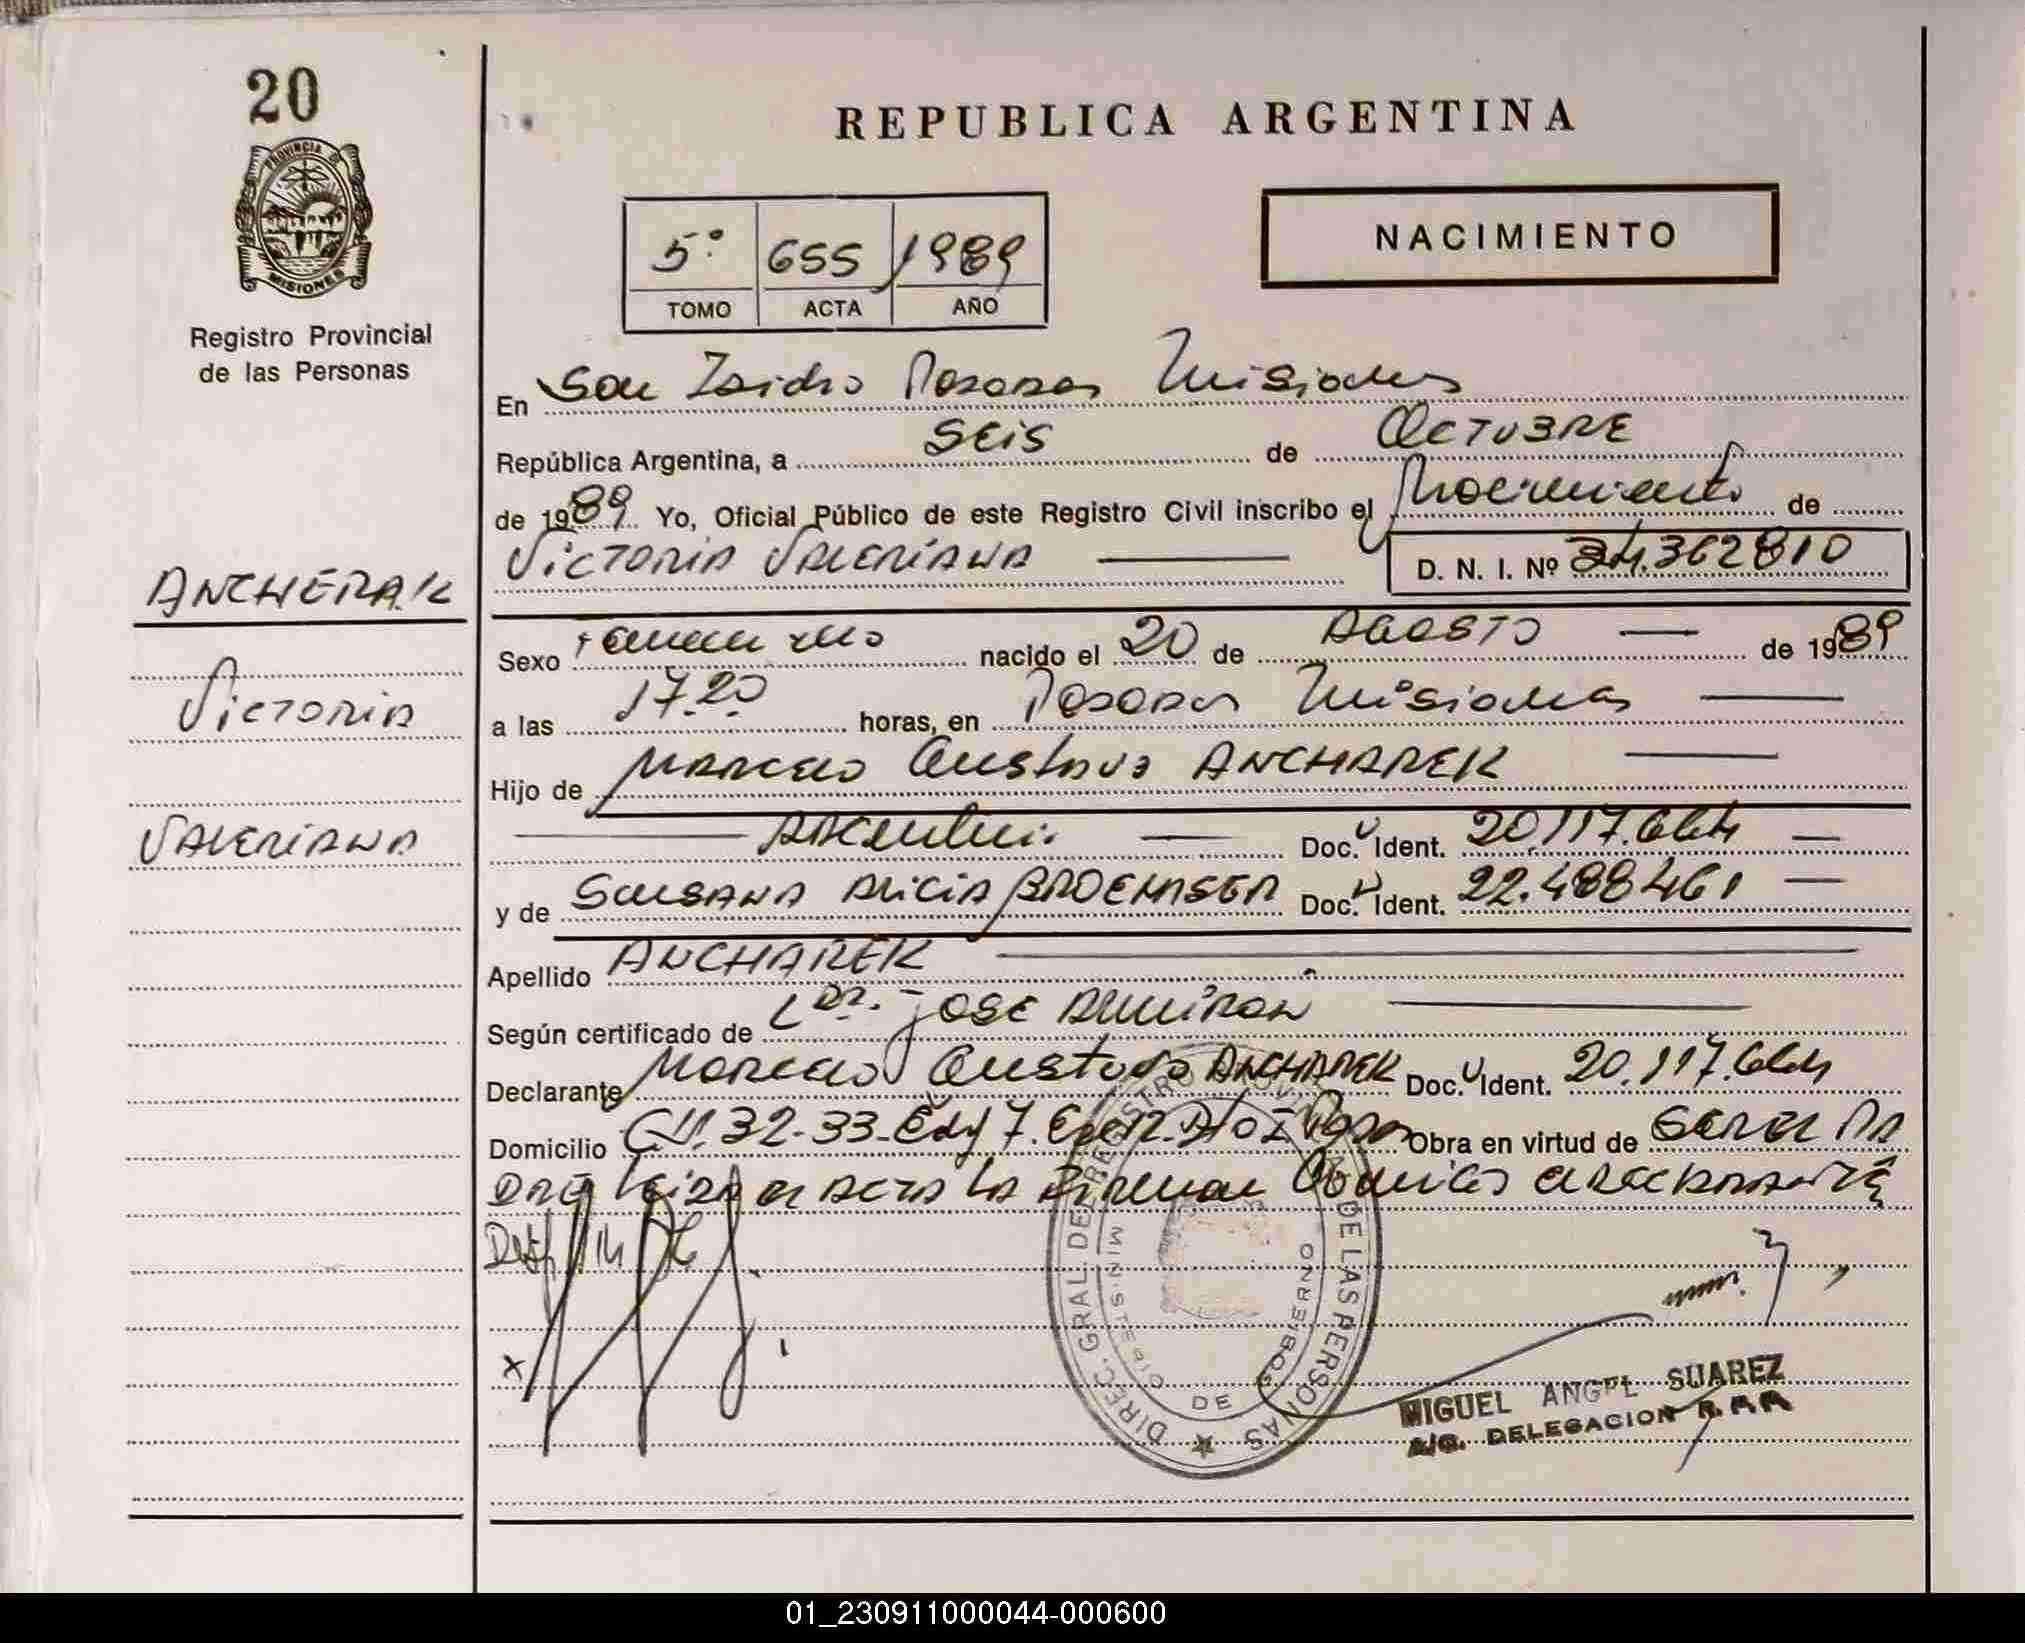 20
PROVINCIA DE
MISIONES
Registro Provincial
de las Personas
ANCHERAK
Victoria
Valeriana
REPUBLICA ARGENTINA
5° 655 1989
TOMO ACTA AÑO
NACIMIENTO
En San Isidro Posadas Misiones
República Argentina, a SEIS de OCTUBRE
de 1989. Yo, Oficial Público de este Registro Civil inscribo el Nacimiento de
Victoria Valeriana D. N. I. Nº 34.362810
Sexo Femenino nacido el 20 de AGOSTO de 1989
a las 17.20 horas, en Posadas Misiones
Hijo de Marcelo Gustavo ANCHAREK
Argentino Doc. Ident. 20.117.664
y de Susana Alicia Doc. Ident. 22.488461
Apellido ANCHAREK
Según certificado de Dr. José Almiron
Declarante Marcelo Gustavo ANCHAREK Doc. Ident. 20.117.664
Domicilio CH. 32-33-Edif 7. Posadas Obra en virtud de ser el Pa
dre leida el acta la firman
DIREC. GRAL. DE REGISTRO PROVINCIAL DE LAS PERSONAS
MINISTERIO DE GOBIERNO
x
MIGUEL ANGEL SUAREZ
A/C. DELEGACION
01_230911000044-000600